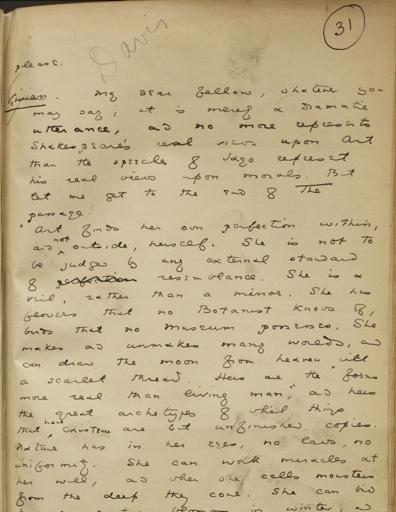 31
Davis
please.
Vivian. My dear fellow, whatever you
may say, it is merely a dramatic
utterance, and no more represents
Shakespeare's real views upon Art
than the speeches of Iago represent
his real views upon morals. But
let me get to the end of The
passage.
"Art finds her own perfection within,
and not outside, herself. She is not to
be judged by any external standard
of resemblance. She is a
veil, rather than a mirror. She has
flowers that no Botanist knows of,
birds that no Museum possesses. She
makes and unmakes many worlds, and
can draw the moon from heaven with
a scarlet thread. Hers are the "forms
more real than living man," and hers
the great archetypes of which things
that have existence are but unfinished copies.
Nature has in her eyes, no laws, no
uniformity. She can work miracles at
her will, and when she calls monsters
from the deep they come. She can bid
in winter, and